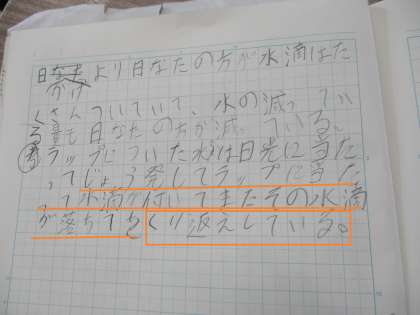 日かげより日なたの方が水滴はた
くさんついていて、水の減ってい
る量も日なたの方が減っている。
考ラップについた水は日光に当た
ってじょう発してラップに当た
って水滴が付いてまたその水滴
が落ちてをくり返えしている。